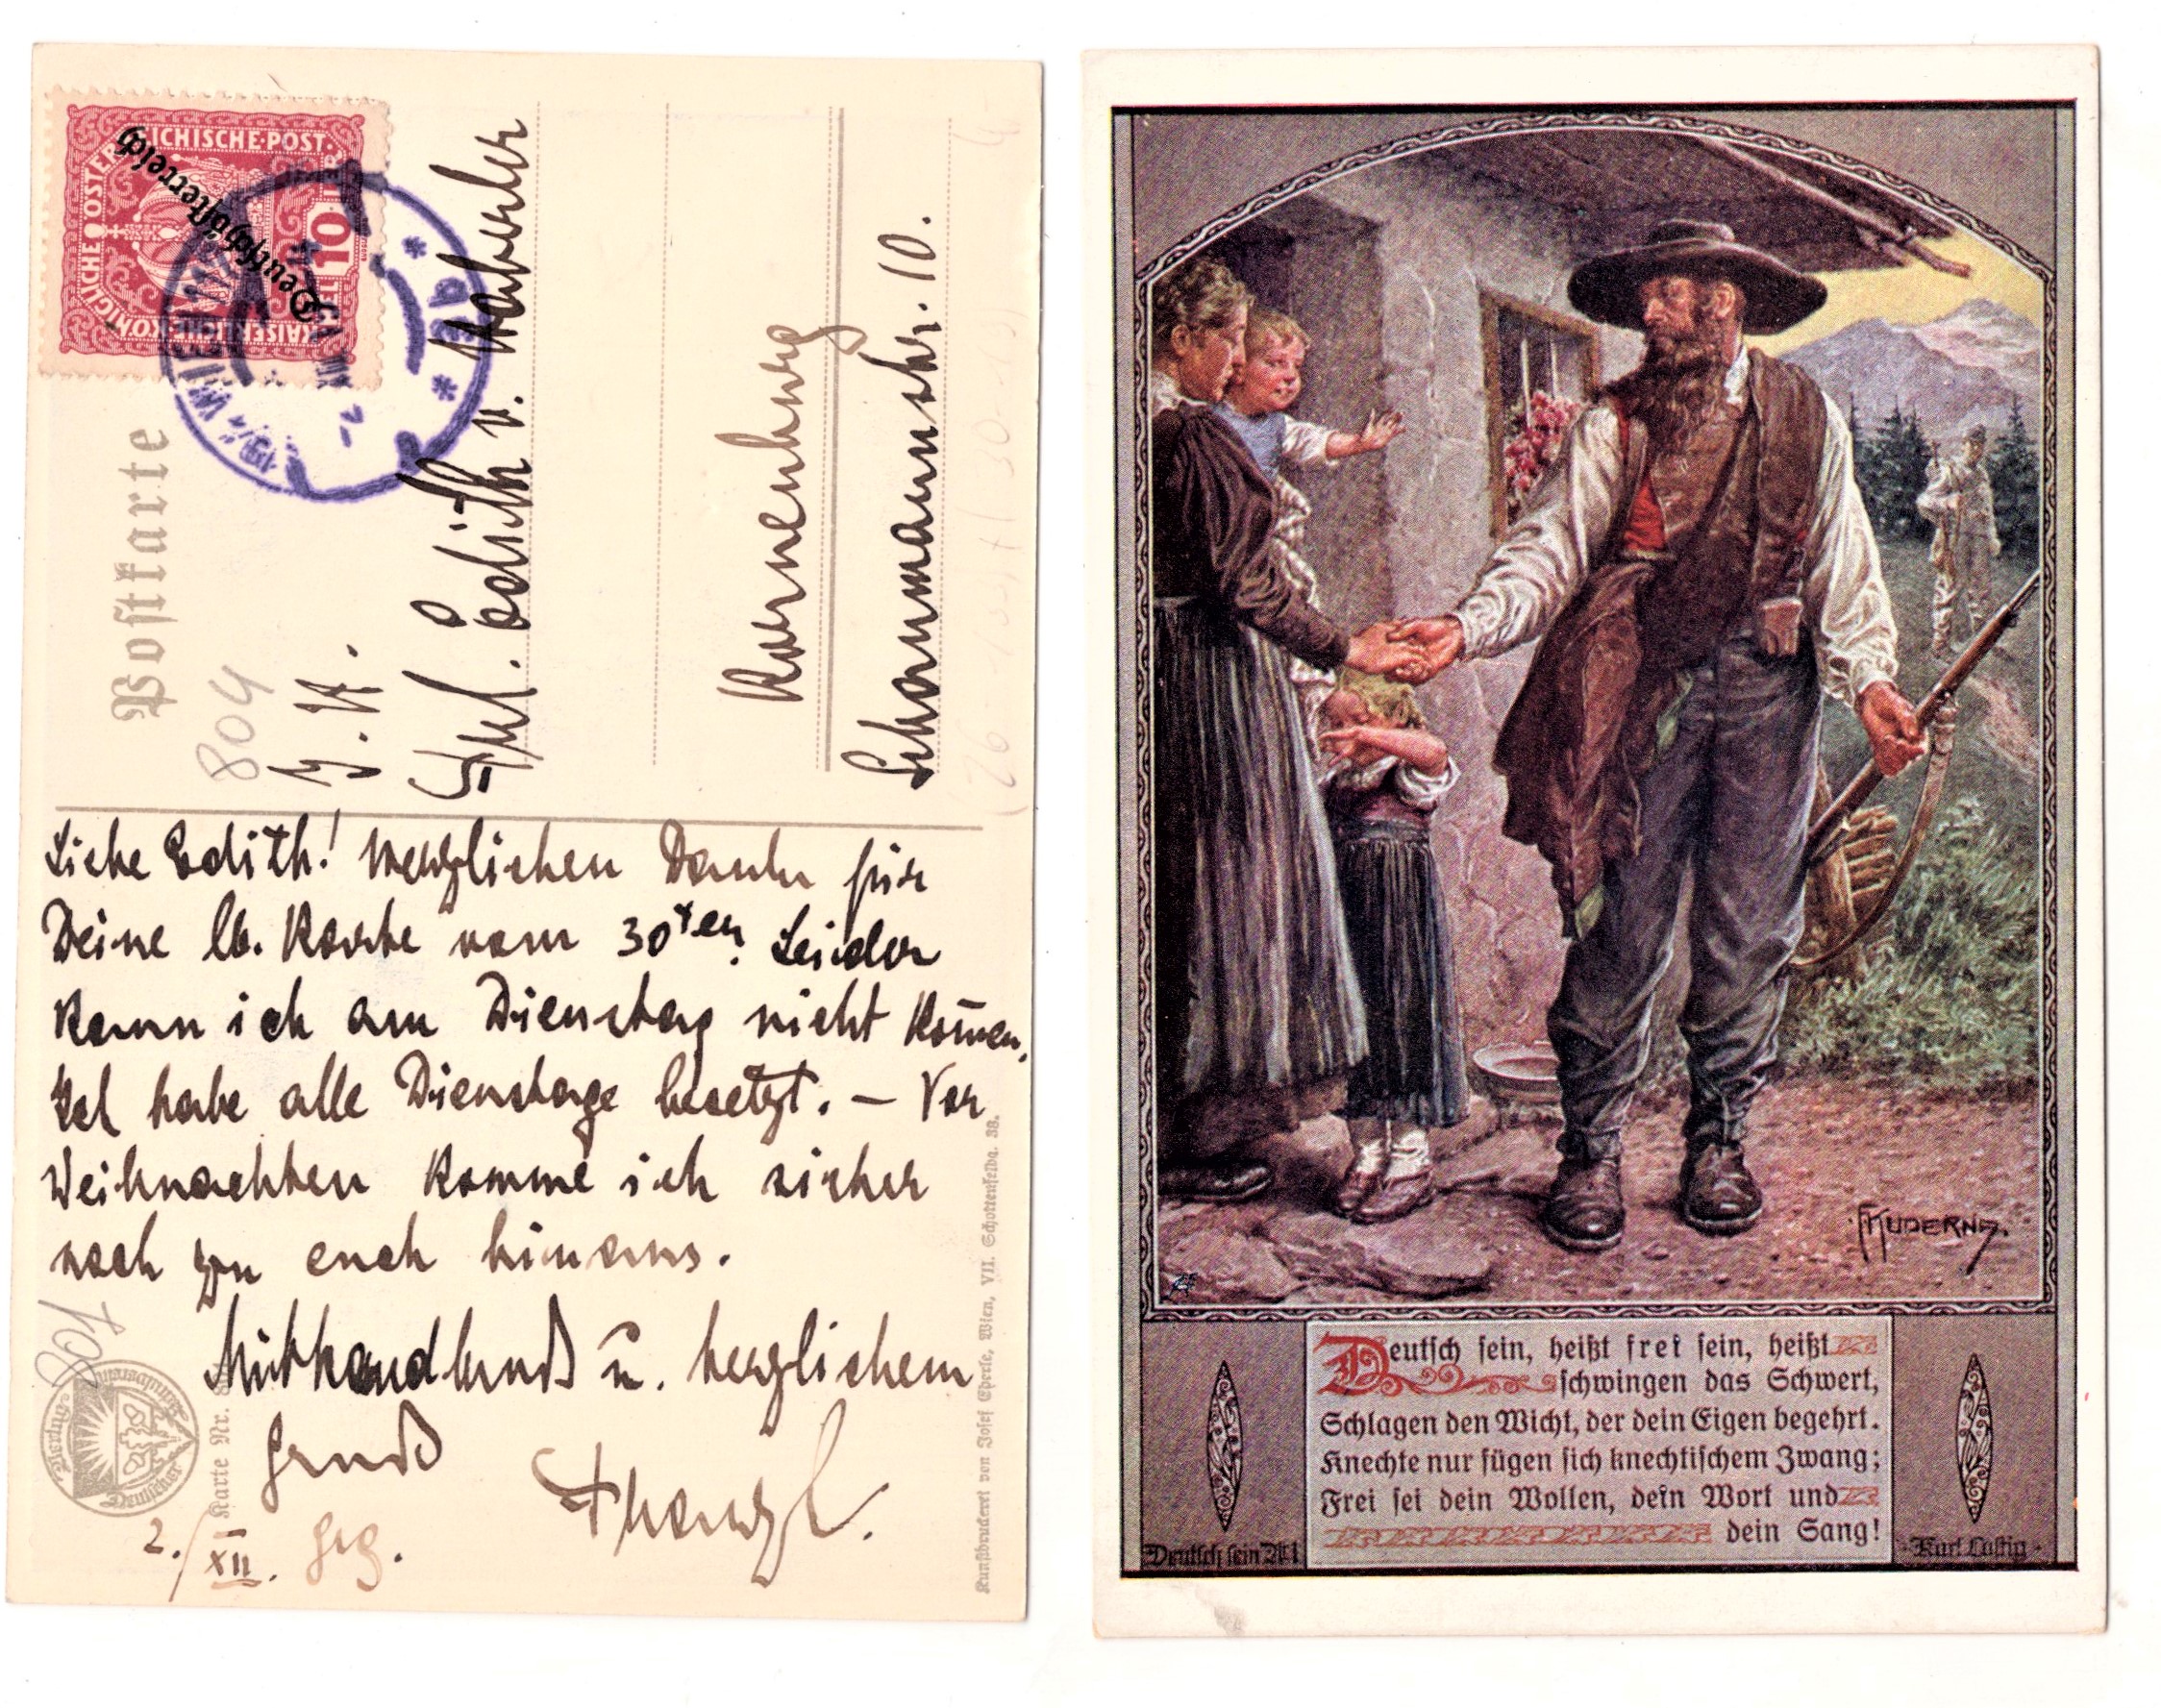 Postkarte
KAISERLICHE KÖNIGLICHE ÖSTERREICHISCHE POST.
10
Deutschösterreich
WIEN
* 3b *
804
J. H.
Frl. Edith v.
Korneuburg
Schaumannstr. 10.
Liebe Edith! Herzlichen Dank für
Deine lb. Karte vom 30ten. Leider
kann ich am Dienstag nicht kom̄en.
Ich habe alle Dienstage besetzt. – Vor
Weihnachten komme ich sicher
noch zu euch hinaus.
Mit Handkuß u. herzlichem
Gruß
2./XII.
801
Karte Nr.
Deutscher
Kunstdruckerei von Josef Eberle, Wien, VII. Schottenfeldg. 38.
F. KUDERNA.
Deutsch sein, heißt frei sein, heißt
schwingen das Schwert,
Schlagen den Wicht, der dein Eigen begehrt.
Knechte nur fügen sich knechtischem Zwang;
Frei sei dein Wollen, dein Wort und
dein Sang!
Deutsch sein
Karl Lustig